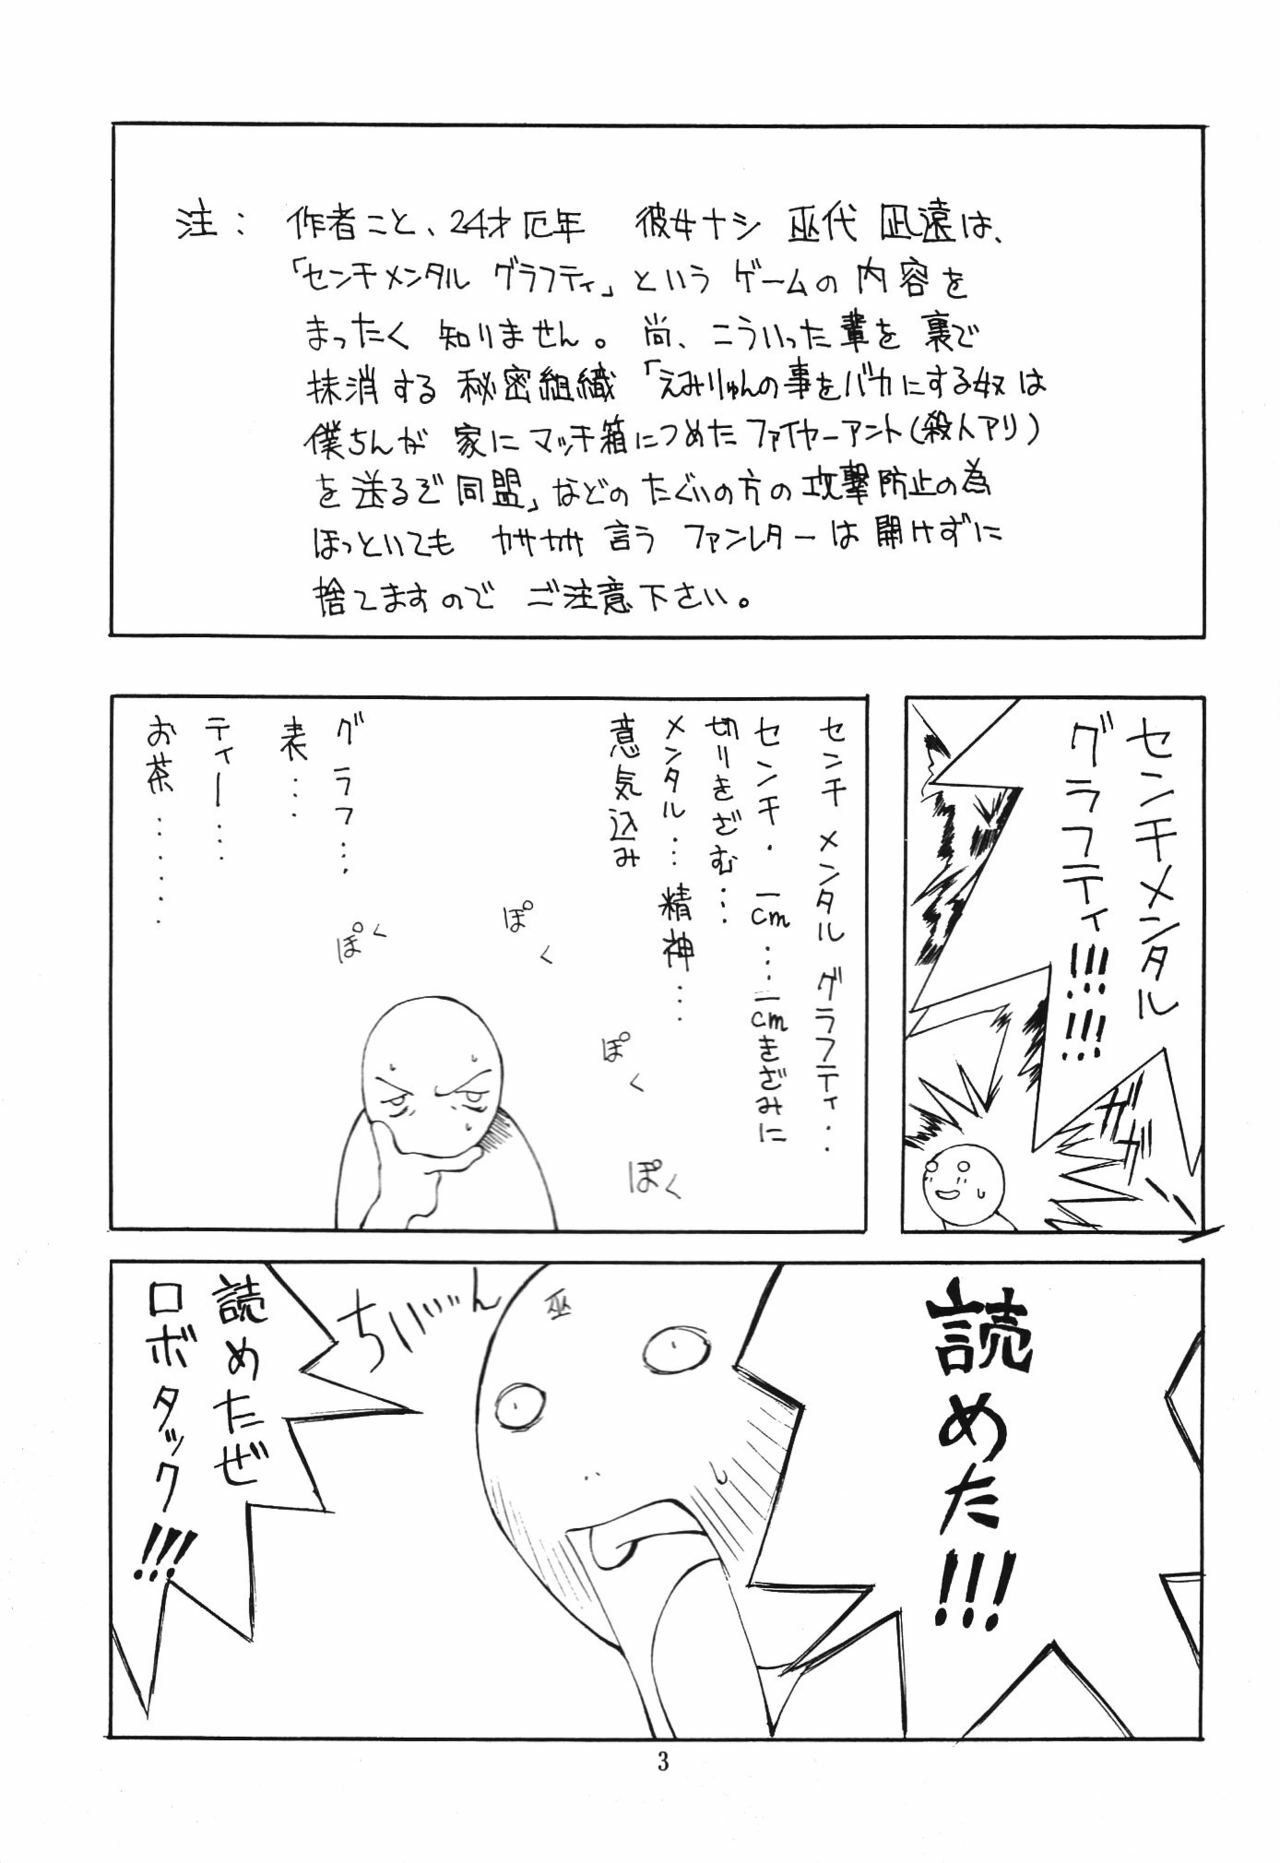 注： 作者こと、24才厄年　彼女ナシ　巫代　凪遠は、
「センチメンタル グラフティ」という ゲームの 内容を
まったく 知りません。尚、こういった 輩を 裏で
抹消する 秘密組織「えみりゅんの事をバカにする奴は
僕ちんが 家に マッチ箱につめた ファイヤーアント(殺人アリ)
を送るぞ同盟」などの たぐいの方の 攻撃防止の為
ほっといても カサカサ 言う ファンレターは 開けずに
捨てますので ご注意下さい。
センチメンタル
グラフティ!!!!!!
ガガーン
センチ メンタル グラフティ・・
センチ・一cm・・・一cmきざみに
切りきざむ・・・
メンタル・・・精神・・・
意気込み
グラフ・・・
表・・・
ティー・・・
お茶・・・・・・
ぽく
ぽく
ぽく
ぽく
読めた!!!
巫
ちいいん
読めたぜ
ロボタック!!!
3